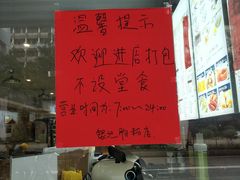 温馨提示
欢迎进店打包
不设堂食
营业时间为:7:00~24:00